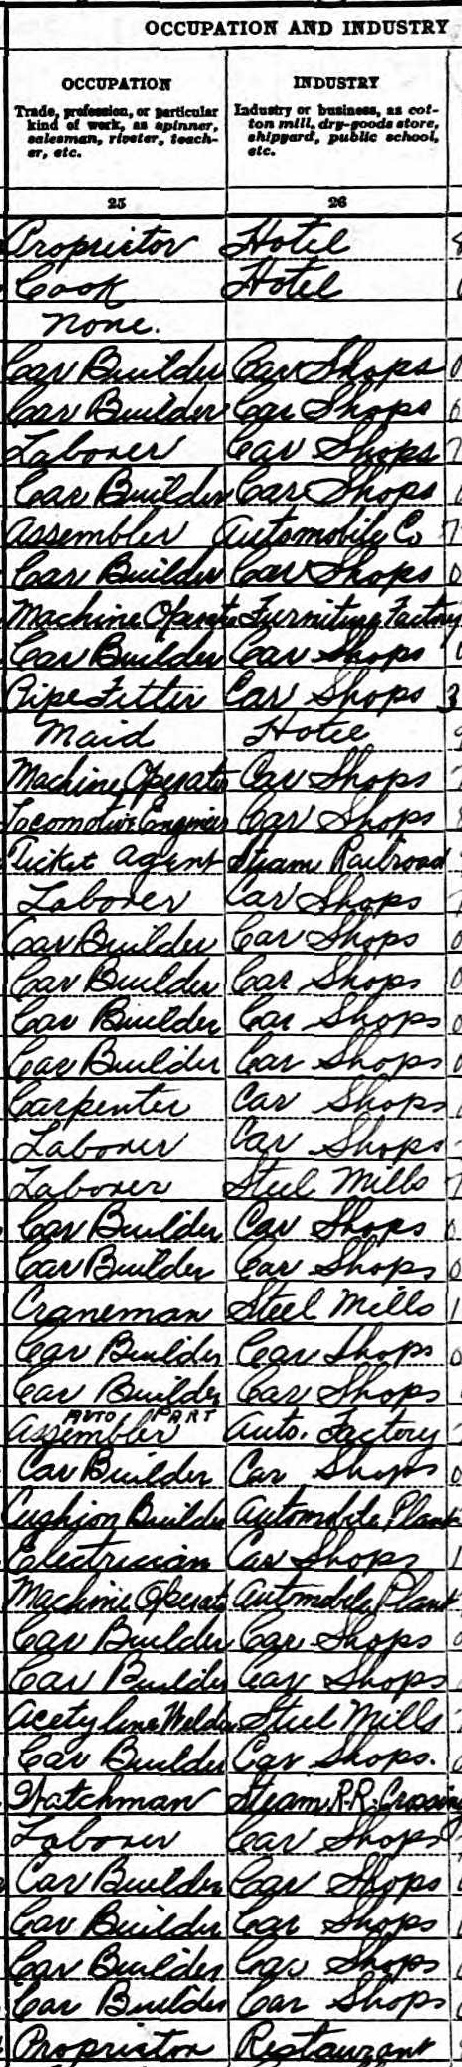 OCCUPATION AND INDUSTRY
OCCUPATION INDUSTRY
Trade, profession, or particular Industry or business, as cot-
kind of work, as spinner, ton mill, dry-goods store,
salesman, riveter, teach- shipyard, public school,
er, etc. etc.
25 26
Proprietor Hotel
Cook Hotel
None.
Car Builder Car Shops
Car Builder Car Shops
Laborer Car Shops
Car Builder Car Shops
Assembler Automobile Co
Car Builder Car Shops
Machine Operator Furniture Factory
Car Builder Car Shops
Pipe Fitter Car Shops
Maid Hotel
Machine Operator Car Shops
Locomotive Engineer Car Shops
Ticket Agent Steam Railroad
Laborer Car Shops
Car Builder Car Shops
Car Builder Car Shops
Car Builder Car Shops
Car Builder Car Shops
Carpenter Car Shops
Laborer Car Shops
Laborer Steel Mills
Car Builder Car Shops
Car Builder Car Shops
Craneman Steel Mills
Car Builder Car Shops
Car Builder Car Shops
AUTO PART
Assembler Auto. Factory
Car Builder Car Shops
Cushion Builder Automobile Plant
Electrician Car Shops
Machine Operator Automobile Plant
Car Builder Car Shops
Car Builder Car Shops
Acetylene Welder Steel Mills
Car Builder Car Shops.
Watchman Steam R.R. Crossing
Laborer Car Shops
Car Builder Car Shops
Car Builder Car Shops
Car Builder Car Shops
Car Builder Car Shops
Proprietor Restaurant